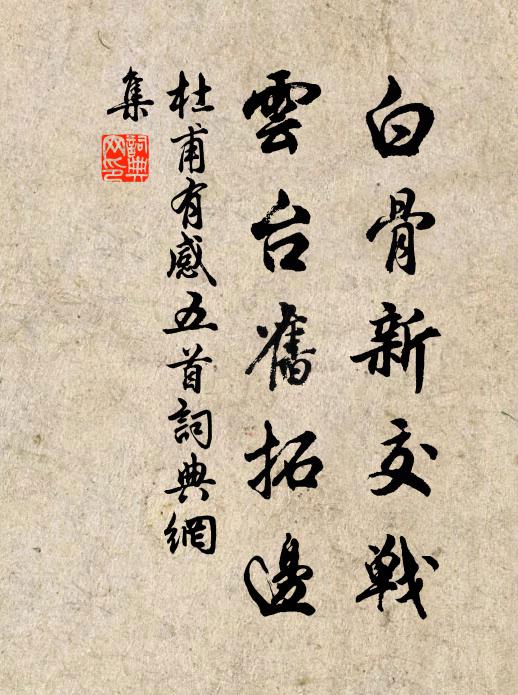 白骨新交戰
雲台舊拓邊
杜甫有感五首詞典網
集
詞典
网印